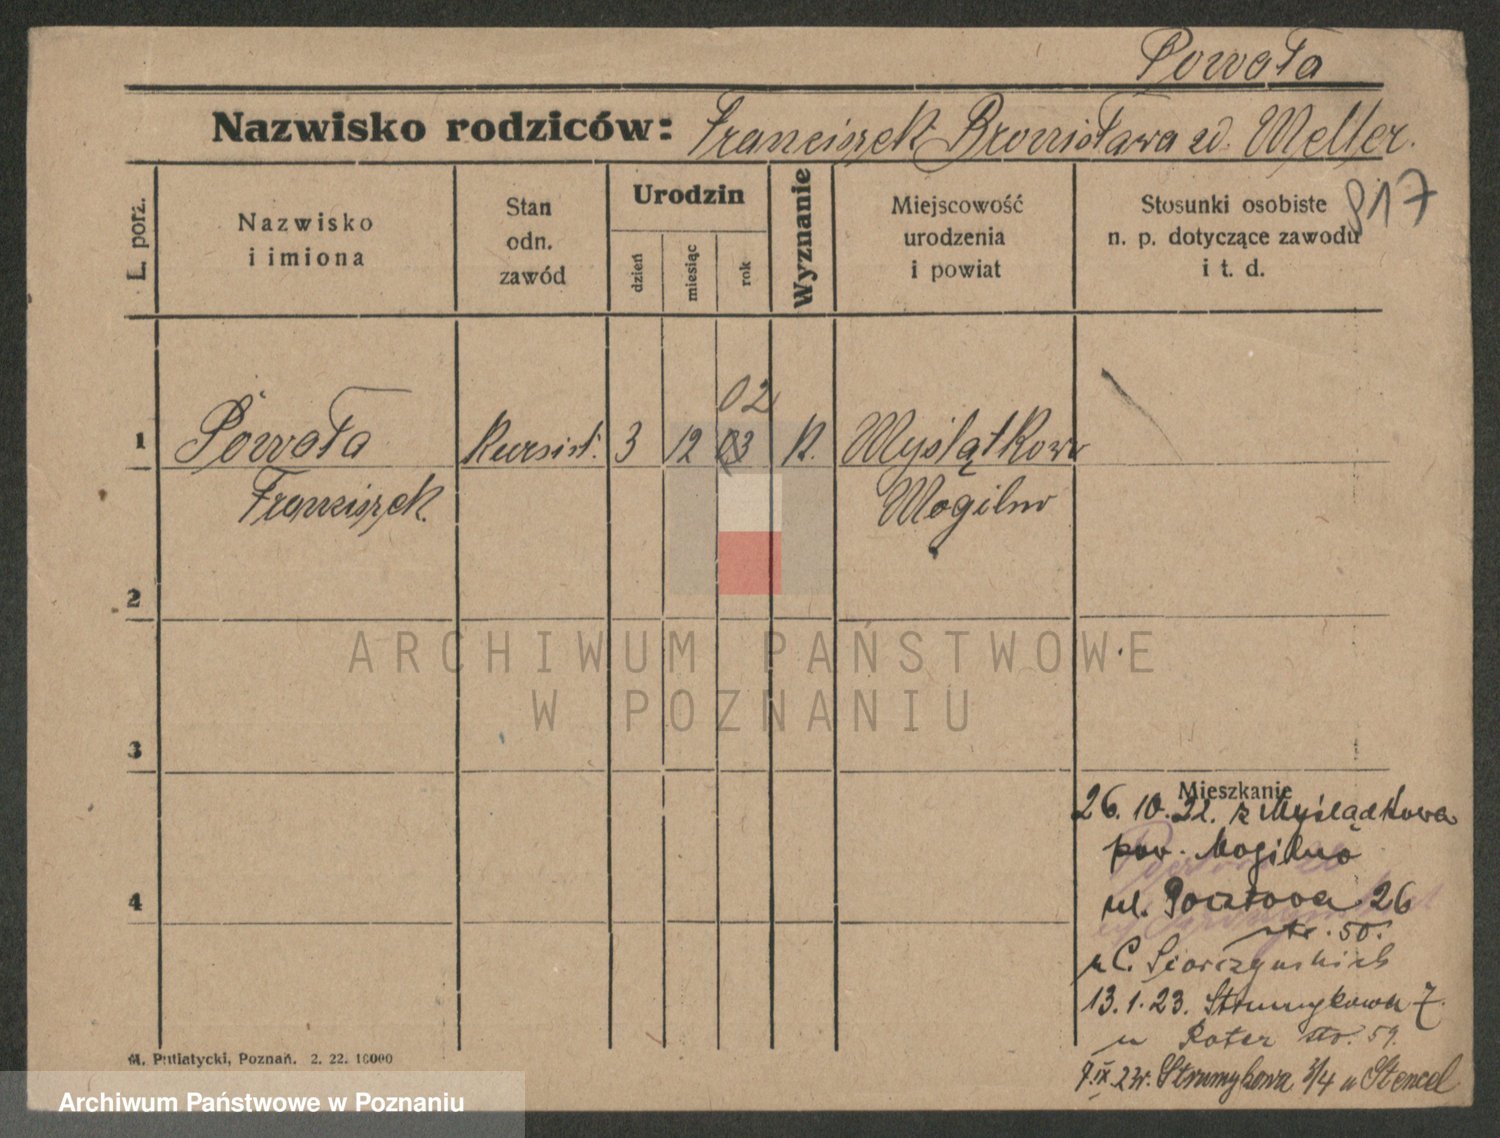 Powała
Nazwisko rodziców: Franciszek Bronisława zd. Meller.
L. porz.
Nazwisko
i imiona
Stan
odn.
zawód
Urodzin
dzień
miesiąc
rok
Wyznanie
Miejscowość
urodzenia
i powiat
Stosunki osobiste
n. p. dotyczące zawodu
i t. d.
817
02
1 Powała kursist. 3 12 03 K. Myślątkowo
Franciszek Mogilno
2
3
4
ARCHIWUM PAŃSTWOWE
W POZNANIU
Mieszkanie
26. 10. 22. z Myślądkowa
pow. Mogilno
ul. Pocztowa 26
str. 50.
u C.
13. 1. 23. Strumykowa 7.
u Rater str. 59.
7.IX.23r. Strumykowa 3/4 u Stencel
M. Putiatycki, Poznań. 2. 22. 10000
Archiwum Państwowe w Poznaniu